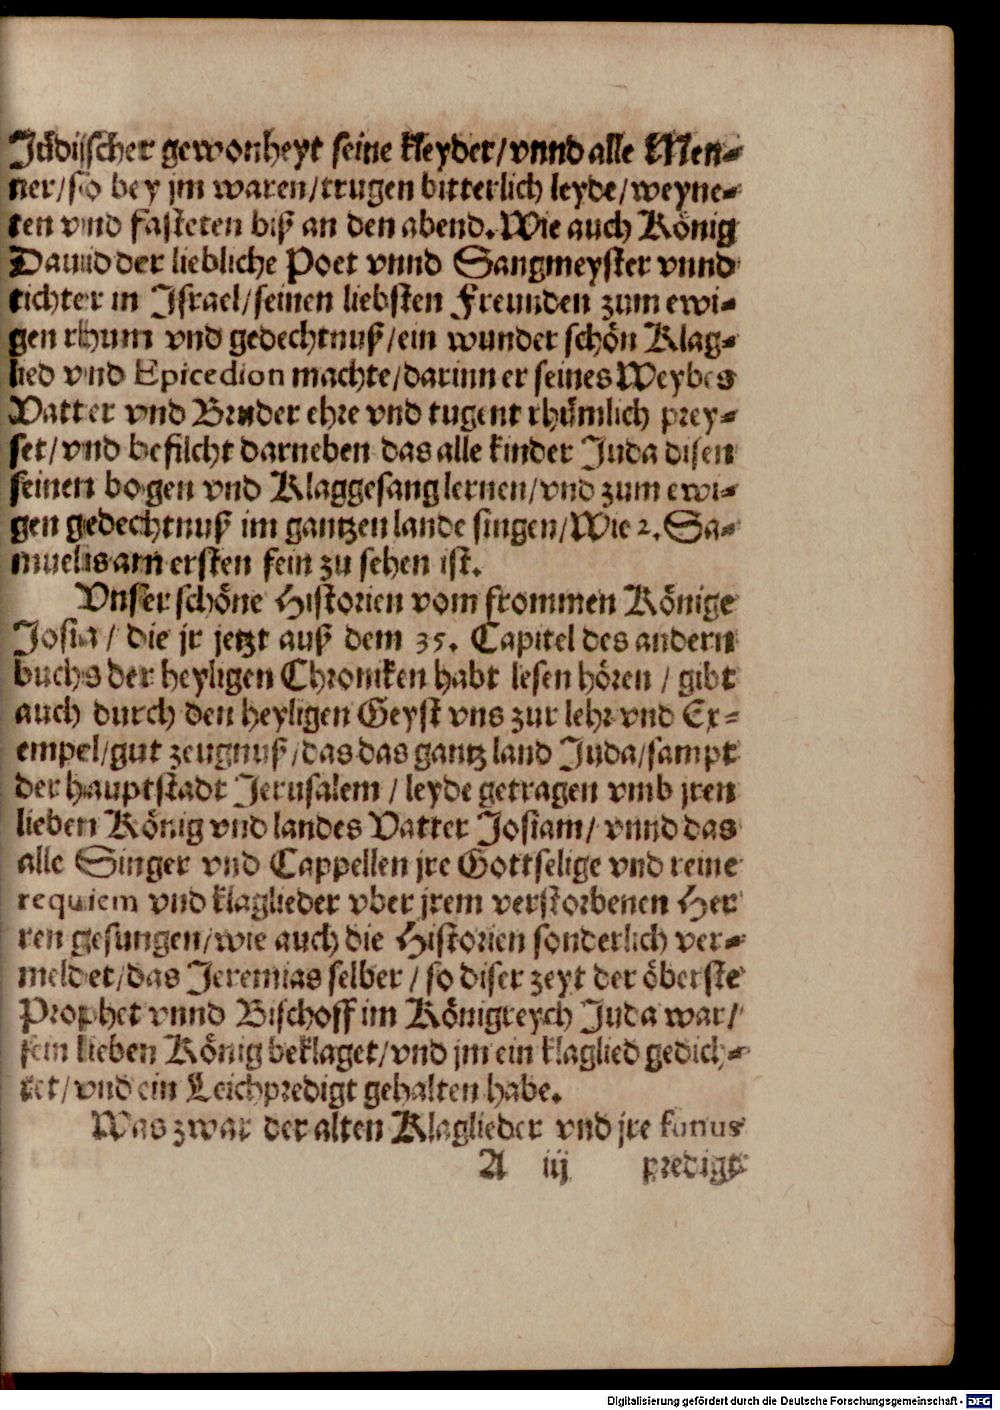 Jüdisscher gewonheyt seine kleyder/vnnd alle Men-
ner/so bey jm waren/trugen bitterlich leyde/weyne-
ten vnd fasteten biß an den abend. Wie auch König
Dauid der liebliche Poet vnnd Sangmeyster vnnd
tichter in Israel/seinen liebsten Freunden zum ewi-
gen rhum vnd gedechtnuß/ein wunder schön Klag-
lied vnd Epicedion machte/darinn er seines Weybes
Vatter vnd Bruder ehre vnd tugent rhümlich prey-
set/vnd befilcht darneben das alle kinder Juda disen
seinen bogen vnd Klaggesang lernen/vnd zum ewi-
gen gedechtnuß im gantzen lande singen/Wie 2. Sa-
muelis am ersten fein zu sehen ist.
Vnser schöne Historien vom frommen Könige
Josia / die jr jetzt auß dem 35. Capitel des andern
buchs der heyligen Chroniken habt lesen hören / gibt
auch durch den heyligen Geyst vns zur lehr vnd Ex-
empel/gut zeugnuß/das das gantz land Juda/sampt
der hauptstadt Jerusalem / leyde getragen vmb jren
lieben König vnd landes Vatter Josiam/ vnnd das
alle Singer vnd Cappellen jre Gottselige vnd reine
requiem vnd klaglieder vber jrem verstorbenen Her
ren gesungen/wie auch die Historien sonderlich ver-
meldet/das Jeremias selber / so diser zeyt der öberste
Prophet vnnd Bischoff im Königreych Juda war/
sein lieben König beklaget/vnd jm ein klaglied gedich-
tet/vnd ein Leichpredigt gehalten habe.
Was zwar der alten Klaglieder vnd jre funus
A iij predigt
Digitalisierung gefördert durch die Deutsche Forschungsgemeinschaft - DFG